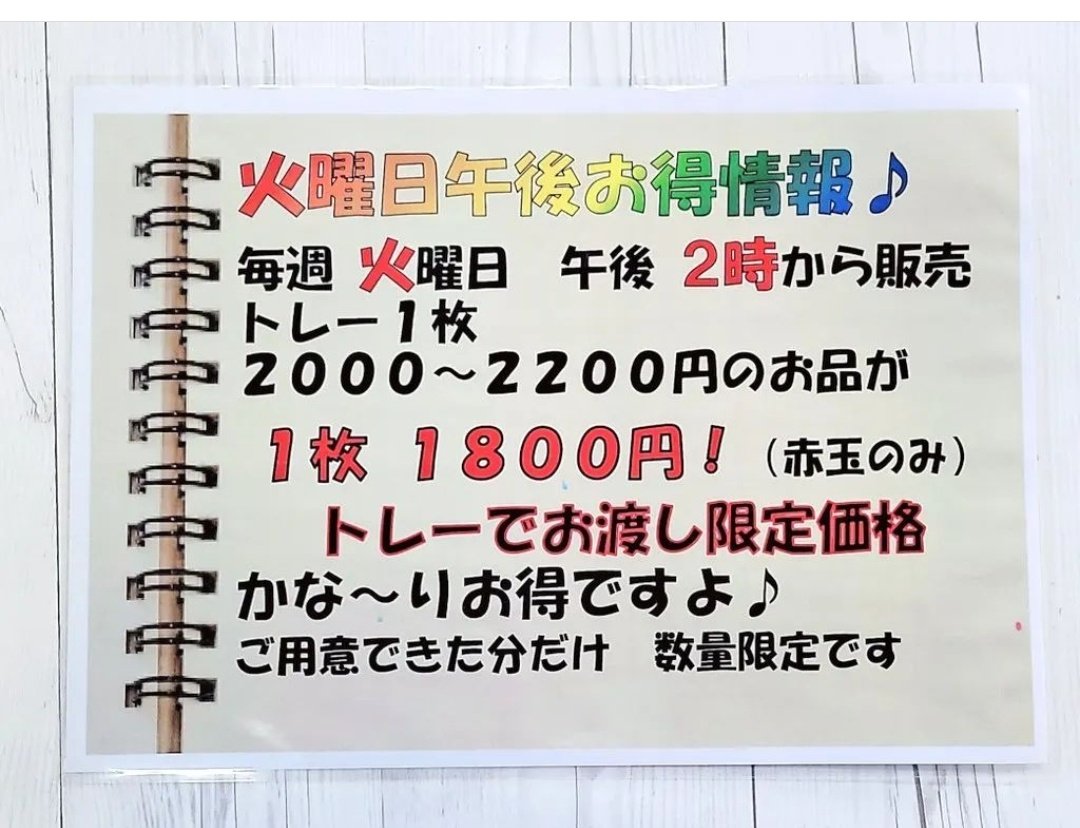 火曜日午後お得情報♪
毎週 火曜日　午後 2時から販売
トレー1枚
2000～2200円のお品が
1枚 1800円！（赤玉のみ）
トレーでお渡し限定価格
かな～りお得ですよ♪
ご用意できた分だけ　数量限定です